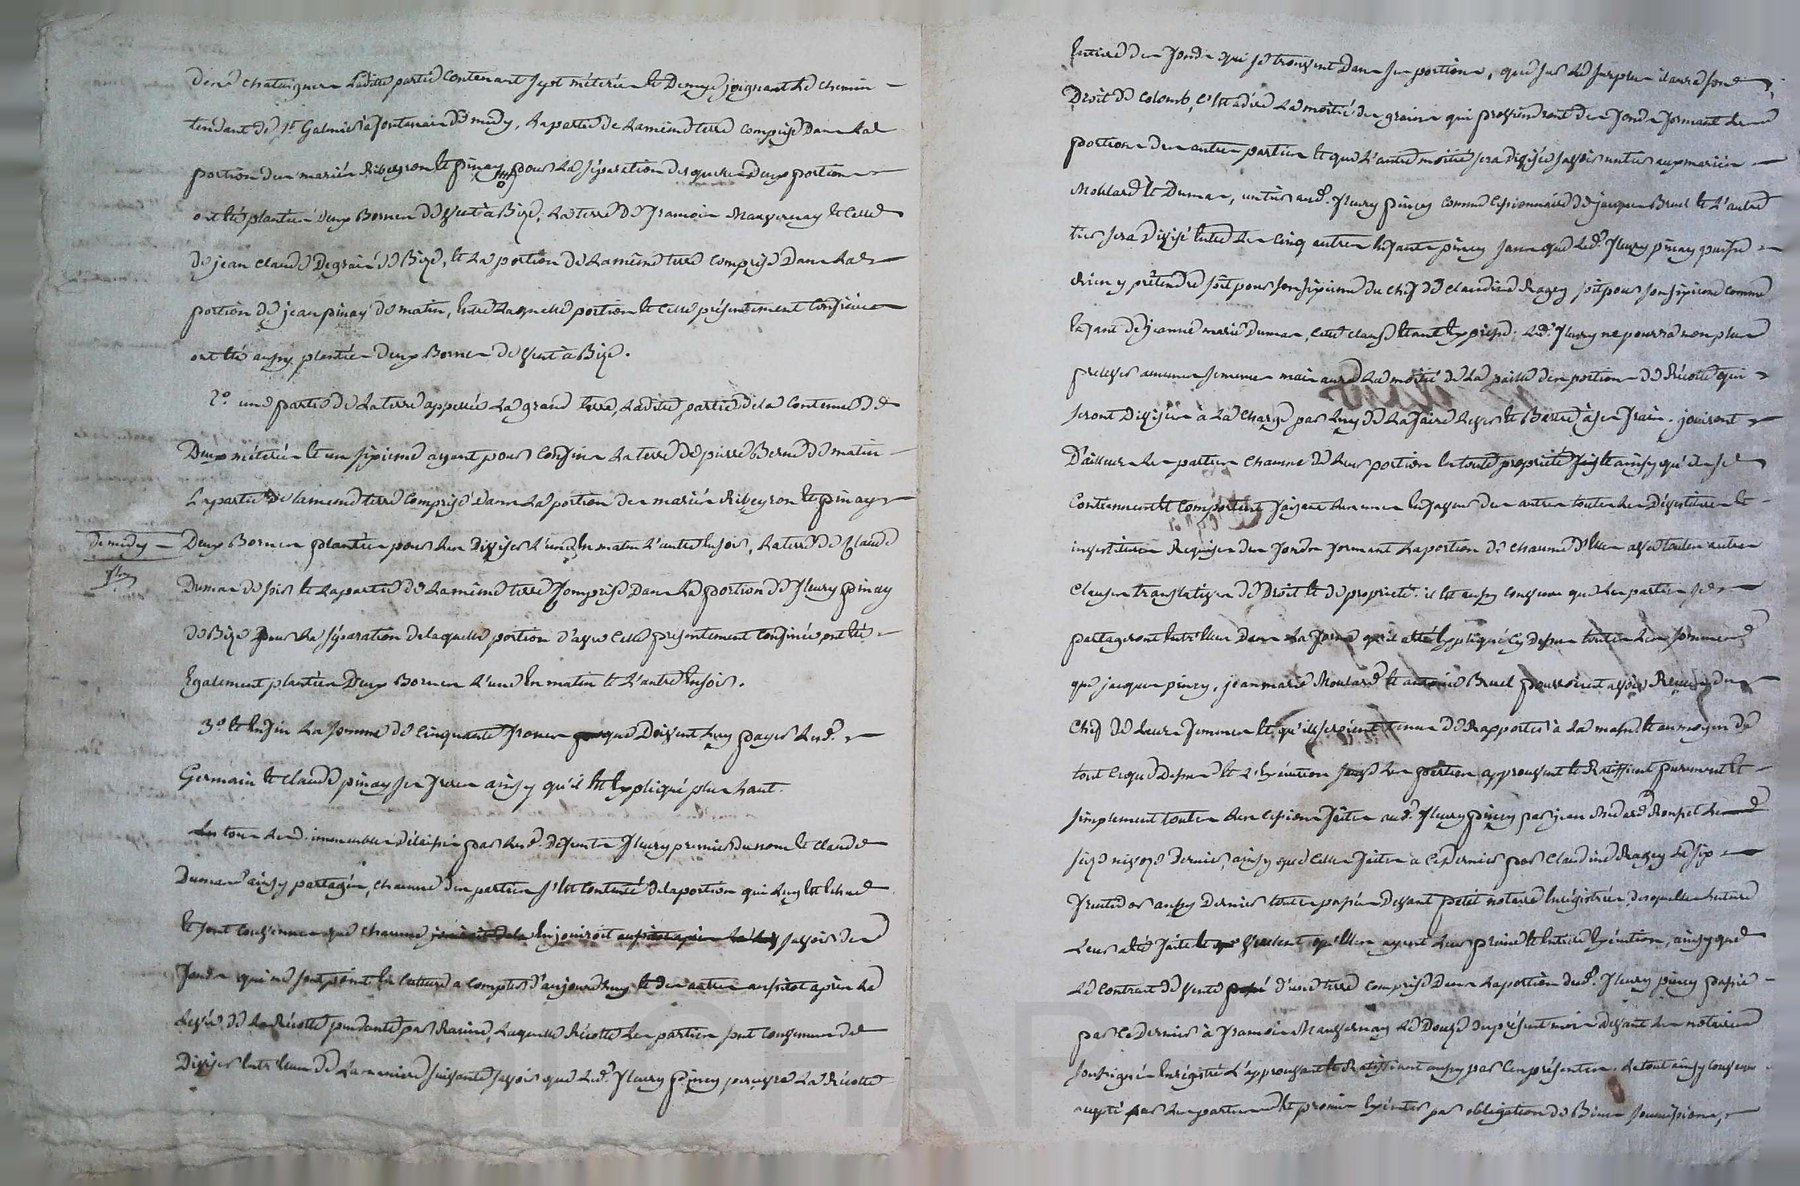 dené chataigner Ladite partie contenant sept méterée et Demye joignant Le chemin
tendant de St. Galmier à fontanais de midy, La partie de La même terre comprise Dans La
portion des mariés Ribeyron et pinay pour La séparation desquelles Deux portions
ont été plantées deux Bornes de vent à Bize, La terre de françois Mauvernay et celle
de jean claude Degrai de Bize, et La portion de La même terre comprise Dans La
portion de jean pinay de matin, entre Laquelle portion et celle présentement Confinée
ont été aussy plantées deux Bornes de vent à Bize.
2º une partie de La terre appellée La grand terre, Ladite partie de la Contenue de
Deux méterée et un sixieme ayant pour Confins La terre de pierre Berne de matin
La partie de la même terre Comprise Dans La portion des mariés Ribeyron et pinay
de midy
Deux Bornes plantées pour Les Diviser L'une en matin L'autre en soir, La terre de Claude
Dumas de soir et La partie de La même terre Comprise Dans La portion de fleury pinay
de Bize pour La séparation de laquelle portion d'avec celle présentement Confinée ont été
Egalement plantées Deux Bornes L'une En matin et L'autre En soir.
3º et Enfin La somme de Cinquante francs que Doivent Luy payer Lesd.
Germain et Claude pinay ses freres ainsy qu'il Est Expliqué plus haut.
Tous Lesd. immeubles délaissés par Lesd. défunts fleury premier du nom et Claude
Dumas ainsy partagés, chacune des parties s'est Contenté de la portion qui Luy est échue
et sont Convenues que chacune En jouiroit savoir des
fonds qui ne sont point En culture a compter d'aujourd'huy et des autres aussitot après La
Levée de La Récolte pendante par Racine, Laquelle Récolte Les parties sont Convenues de
Diviser Entr'Elles de La maniere suivante savoir que Led. fleury pinay percevra La Récolte
Entiere des fonds qui se trouvent Dans sa portion, que sur Le surplus il aura son
Droit de Colomb, C'est à dire La moitié des grains qui proviendront des fonds formant Les
portions des autres parties et que L'autre moitié sera divisée savoir un tiers aux mariés
Moulard et Dumas, un tiers aud. fleury pinay comme Cessionnaire de jacques Bruel et L'autre
tiers sera Divisé Entre Les Cinq autres Enfants pinay sans que Led. fleury pinay puisse
Rien y prétendre soit pour son sixieme du Chef de Claudine Ragey soit pour son sixieme comme
Enfant de jeanne marie Dumas, cette clause Etant Expresse; Led. fleury ne pourra non plus
prélever aucunes semences mais aura La moitié de La paille des portions de Récolte qui
seront Divisées à La Charge par Luy de La faire Lever et Battre à ses frais. jouiront
D'ailleurs Les parties chacune de Leur portion En toute propriété Juste ainsy qu'elles se
Contiennent et Comportent faisant Les unes En faveur des autres toutes Les Devestitures et
investitures Requises des fonds formant La portion de chacune d'Elles avec toutes autres
Clauses translatives de Droit et de propriété. il Est aussy convenu que Les parties se
partageront Entr'Elles Dans La forme qu'il a été Expliqué Cy Dessus toutes Les sommes
que jacques pinay, jean marie Moulard et Bruel pourroient avoir Reçues du
Chef de Leurs femmes et qu'ils seroient tenus de Rapporter à La masse. et au moyen de
tout Ce que Dessus et L'Exécution Les parties approuvent et Ratiffient purement et
simplement toutes Les Cessions faites aud. fleury pinay par jean
seize nivose Dernier, ainsy que Celle faite à Ce Dernier par Claudine Ragey Le six
fructidor aussy Dernier toutes passées Devant petit notaire Enregistrées, desquelles lecture
Leur a été faite et veulent qu'Elles ayent Leur pleine et Entiere Exécution, ainsy que
Le Contrat de vente d'une terre Comprise Dans La portion dud. fleury pinay passé
par ce Dernier à françois Mauvernay Le Douze du présent mois Devant Les notaires
soussignés Enregistré L'approuvant et Ratiffiant aussy par Ces présentes. Le tout ainsy Convenu
accepté par Les parties et promis Exécuter par obligation de Biens soumissions,